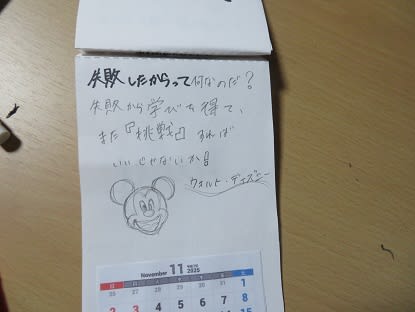 失敗したからって何なのだ?
失敗から学びを得て、
また『挑戦』すれば
いいじゃないか!
ウォルト・ディズニー
November 11 2025
日 月 火 水 木 金 土
26 27 28 29 30 31 1
2 3 4 5 6 7 8